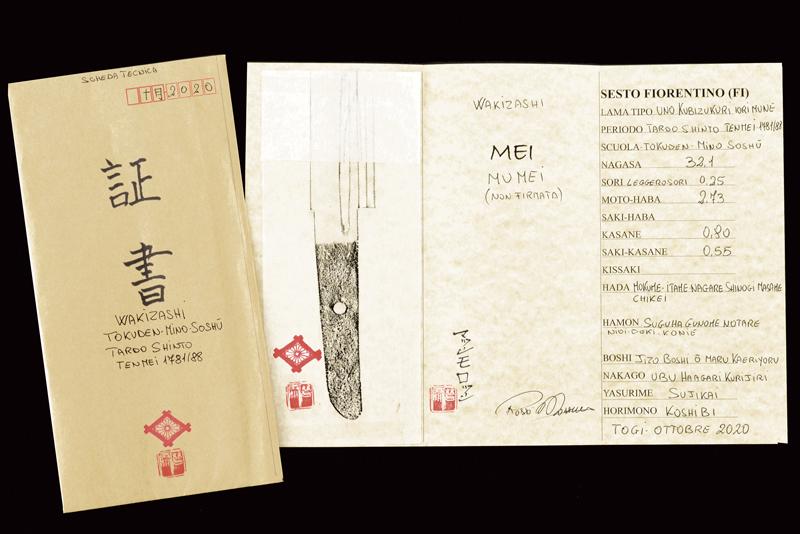 SCHEDA TECNICA
十月2020
証
書
WAKIZASHI
TOKUDEN-MINO-SOSHŪ
TARDO SHINTO
TENMEI 1781/88
WAKIZASHI
MEI
MUMEI
(NON FIRMATA)
SESTO FIORENTINO (FI)
LAMA TIPO UNO KUBIZUKURI IORI MUNE
PERIODO TARDO SHINTO TENMEI 1781/88
SCUOLA TOKUDEN-MINO SOSHŪ
NAGASA 32,1
SORI LEGGEROSORI 0,25
MOTO-HABA 2,73
SAKI-HABA
KASANE 0,80
SAKI-KASANE 0,55
KISSAKI
HADA MOKUME-ITAME NAGARE SHINOGI MASAME
CHIKEI
HAMON SUGUHA GUNOME NOTARE
KONIE
BOSHI JIZO BOSHI Ō MARU KAERIYORU
NAKAGO UBU HAAGARI KURIJIRI
YASURIME SUJIKAI
HORIMONO KOSHIBI
TOGI-OTTOBRE 2020